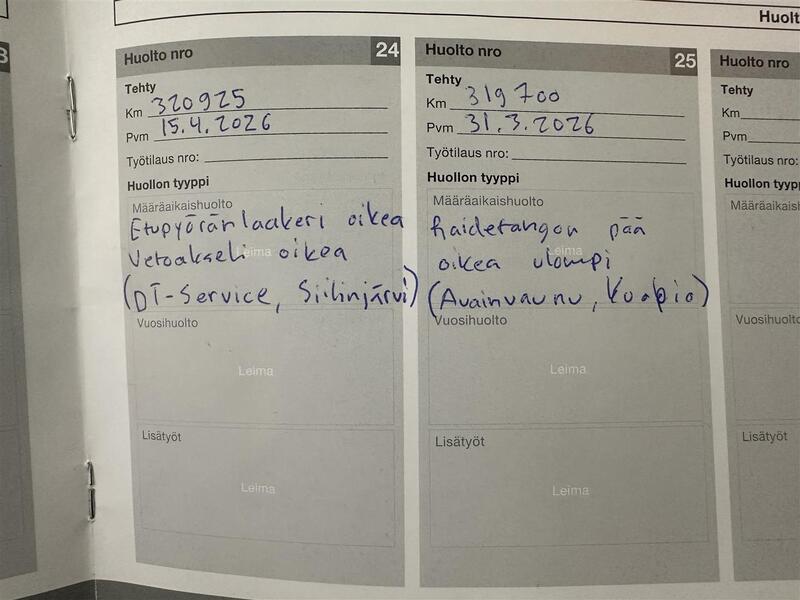 Huolt
Huolto nro 24
Tehty
Km 320925
Pvm 15.4.2026
Työtilaus nro:
Huollon tyyppi
Määräaikaishuolto
Etupyöränlaakeri oikea
Leima
Vetoakseli oikea
(DT-Service, Siilinjärvi)
Vuosihuolto
Leima
Lisätyöt
Leima
Huolto nro 25
Tehty
Km 319700
Pvm 31.3.2026
Työtilaus nro:
Huollon tyyppi
Määräaikaishuolto
Raidetangon pää
Leima
oikea ulompi
(Avainvaunu, Kuopio)
Vuosihuolto
Leima
Lisätyöt
Leima
Huolto nro
Tehty
Km
Pvm
Työtilaus nro:
Huollon tyypp
Määräaikaish
Vuosihuolto
Lisätyöt